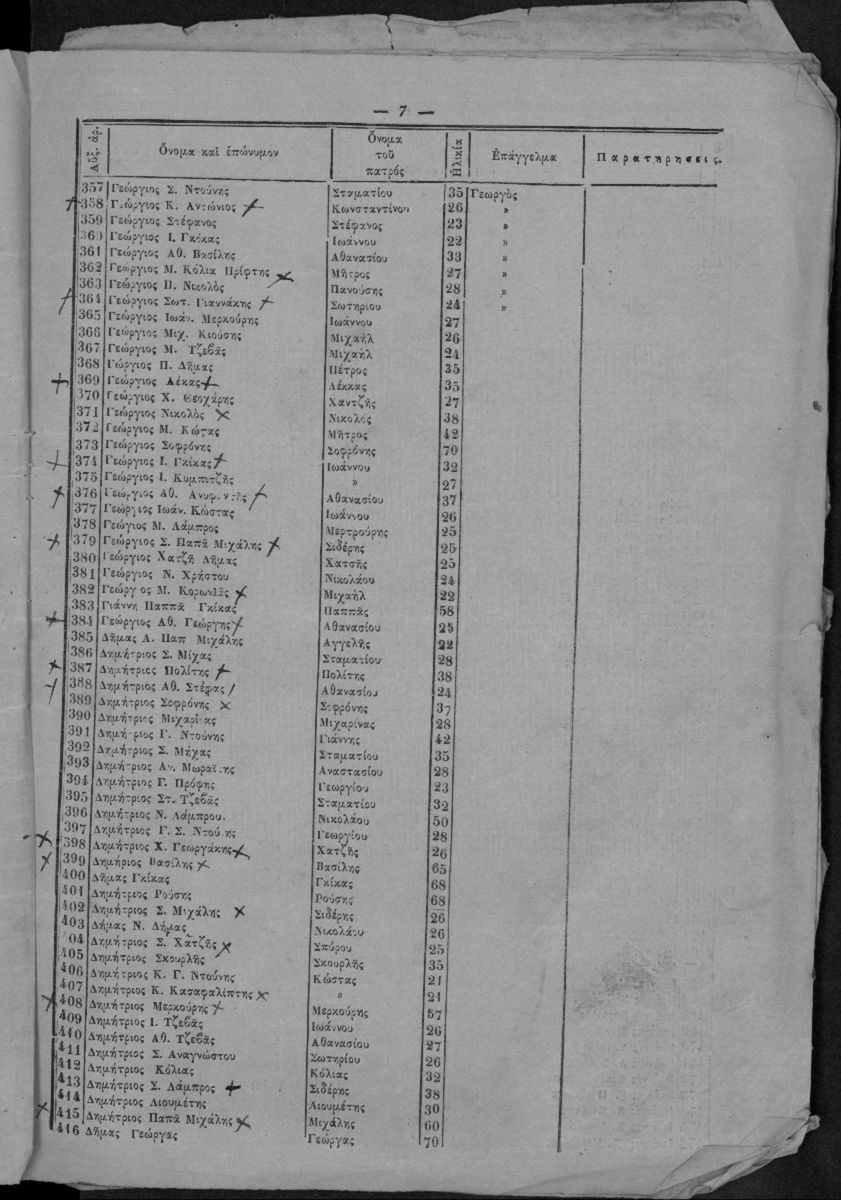 — 7 —
Αὔξ. ἀρ. Ὄνομα καὶ ἐπώνυμον Ὄνομα τοῦ πατρός Ἡλικία Ἐπάγγελμα Παρατηρήσεις.
357 Γεώργιος Σ. Ντούνης Σταματίου 35 Γεωργὸς
358 Γεώργιος Κ. Αντώνιος Κωνσταντίνου 26 »
359 Γεώργιος Στέφανος Στέφανος 23 »
360 Γεώργιος Ι. Γκίκας Ιωάννου 22 »
361 Γεώργιος Αθ. Βασίλης Αθανασίου 33 »
362 Γεώργιος Μ. Κόλια Πρίφτης Μῆτρος 27 »
363 Γεώργιος Π. Νικολὸς Πανούσης 28 »
364 Γεώργιος Σωτ. Γιαννάκης Σωτηρίου 24 »
365 Γεώργιος Ιωάν. Μερκούρης Ιωάννου 27
366 Γεώργιος Μιχ. Κιούσης Μιχαὴλ 26
367 Γεώργιος Μ. Τζεβᾶς Μιχαὴλ 24
368 Γώργιος Π. Δῆμας Πέτρος 35
369 Γεώργιος Λέκας Λέκκας 35
370 Γεώργιος Χ. Θεοχάρης Χαντζῆς 27
371 Γεώργιος Νικολὸς Νικολὸς 38
372 Γεώργιος Μ. Κώτας Μῆτρος 42
373 Γεώργιος Σοφρόνης Σοφρόνης 70
374 Γεώργιος Ι. Γκίκας Ιωάννου 32
375 Γεώργιος Ι. Κυμπιτζῆς » 27
376 Γεώργιος Αθ. Αθανασίου 37
377 Γεώργιος Ιωάν. Κώστας Ιωάννου 26
378 Γεώγιος Μ. Λάμπρος Μερτρούρης 25
379 Γεώργιος Σ. Παπᾶ Μιχάλης Σιδέρης 25
380 Γεώργιος Χατζῆ Δῆμας Χατσῆς 25
381 Γεώργιος Ν. Χρήστου Νικολάου 24
382 Γεώργιος Μ. Κορωνιᾶς Μιχαὴλ 22
383 Γιάννη Παππᾶ Γκίκας Παππᾶς 58
384 Γεώργιος Αθ. Γεώργης Αθανασίου 25
385 Δῆμας Α. Παπ Μιχάλης Αγγελῆς 22
386 Δημήτριος Σ. Μίχας Σταματίου 28
387 Δημήτριος Πολίτης Πολίτης 38
388 Δημήτριος Αθ. Στέφας Αθανασίου 24
389 Δημήτριος Σοφρόνης Σοφρόνης 37
390 Δημήτριος Μιχαρίνας Μιχαρίνας 28
391 Δημήτριος Γ. Ντούνης Γιάννης 42
392 Δημήτριος Σ. Μήχας Σταματίου 35
393 Δημήτριος Αν. Μωραΐτης Αναστασίου 28
394 Δημήτριος Γ. Πρόφης Γεωργίου 23
395 Δημήτριος Στ. Τζεβᾶς Σταματίου 32
396 Δημήτριος Ν. Λάμπρου. Νικολάου 50
397 Δημήτριος Γ. Σ. Ντούνης Γεωργίου 28
398 Δημήτριος Χ. Γεωργάκης Χατζῆς 26
399 Δημήριος Βασίλης Βασίλης 65
400 Δῆμας Γκίκας Γκίκας 68
401 Δημήτριος Ρούσης Ρούσης 68
402 Δημήτριος Σ. Μιχάλης Σιδέρης 26
403 Δήμας Ν. Δήμας Νικολάου 26
404 Δημήτριος Σ. Χατζῆς Σπύρου 25
405 Δημήτριος Σκουρλῆς Σκουρλῆς 35
406 Δημήτριος Κ. Γ. Ντούνης Κώστας 21
407 Δημήτριος Κ. Κασαφαλίπτης » 21
408 Δημήτριος Μερκούρης Μερκούρης 57
409 Δημήτριος Ι. Τζεβᾶς Ιωάννου 26
410 Δημήτριος Αθ. Τζεβᾶς Αθανασίου 27
411 Δημήτριος Σ. Αναγνώστου Σωτηρίου 26
412 Δημήτριος Κόλιας Κόλιας 32
413 Δημήτριος Σ. Λάμπρος Σιδέρης 38
414 Δημήτριος Λιουμέτης Λιουμέτης 30
415 Δημήτριος Παπᾶ Μιχάλης Μιχάλης 60
416 Δῆμας Γεώργας Γεώργας 70